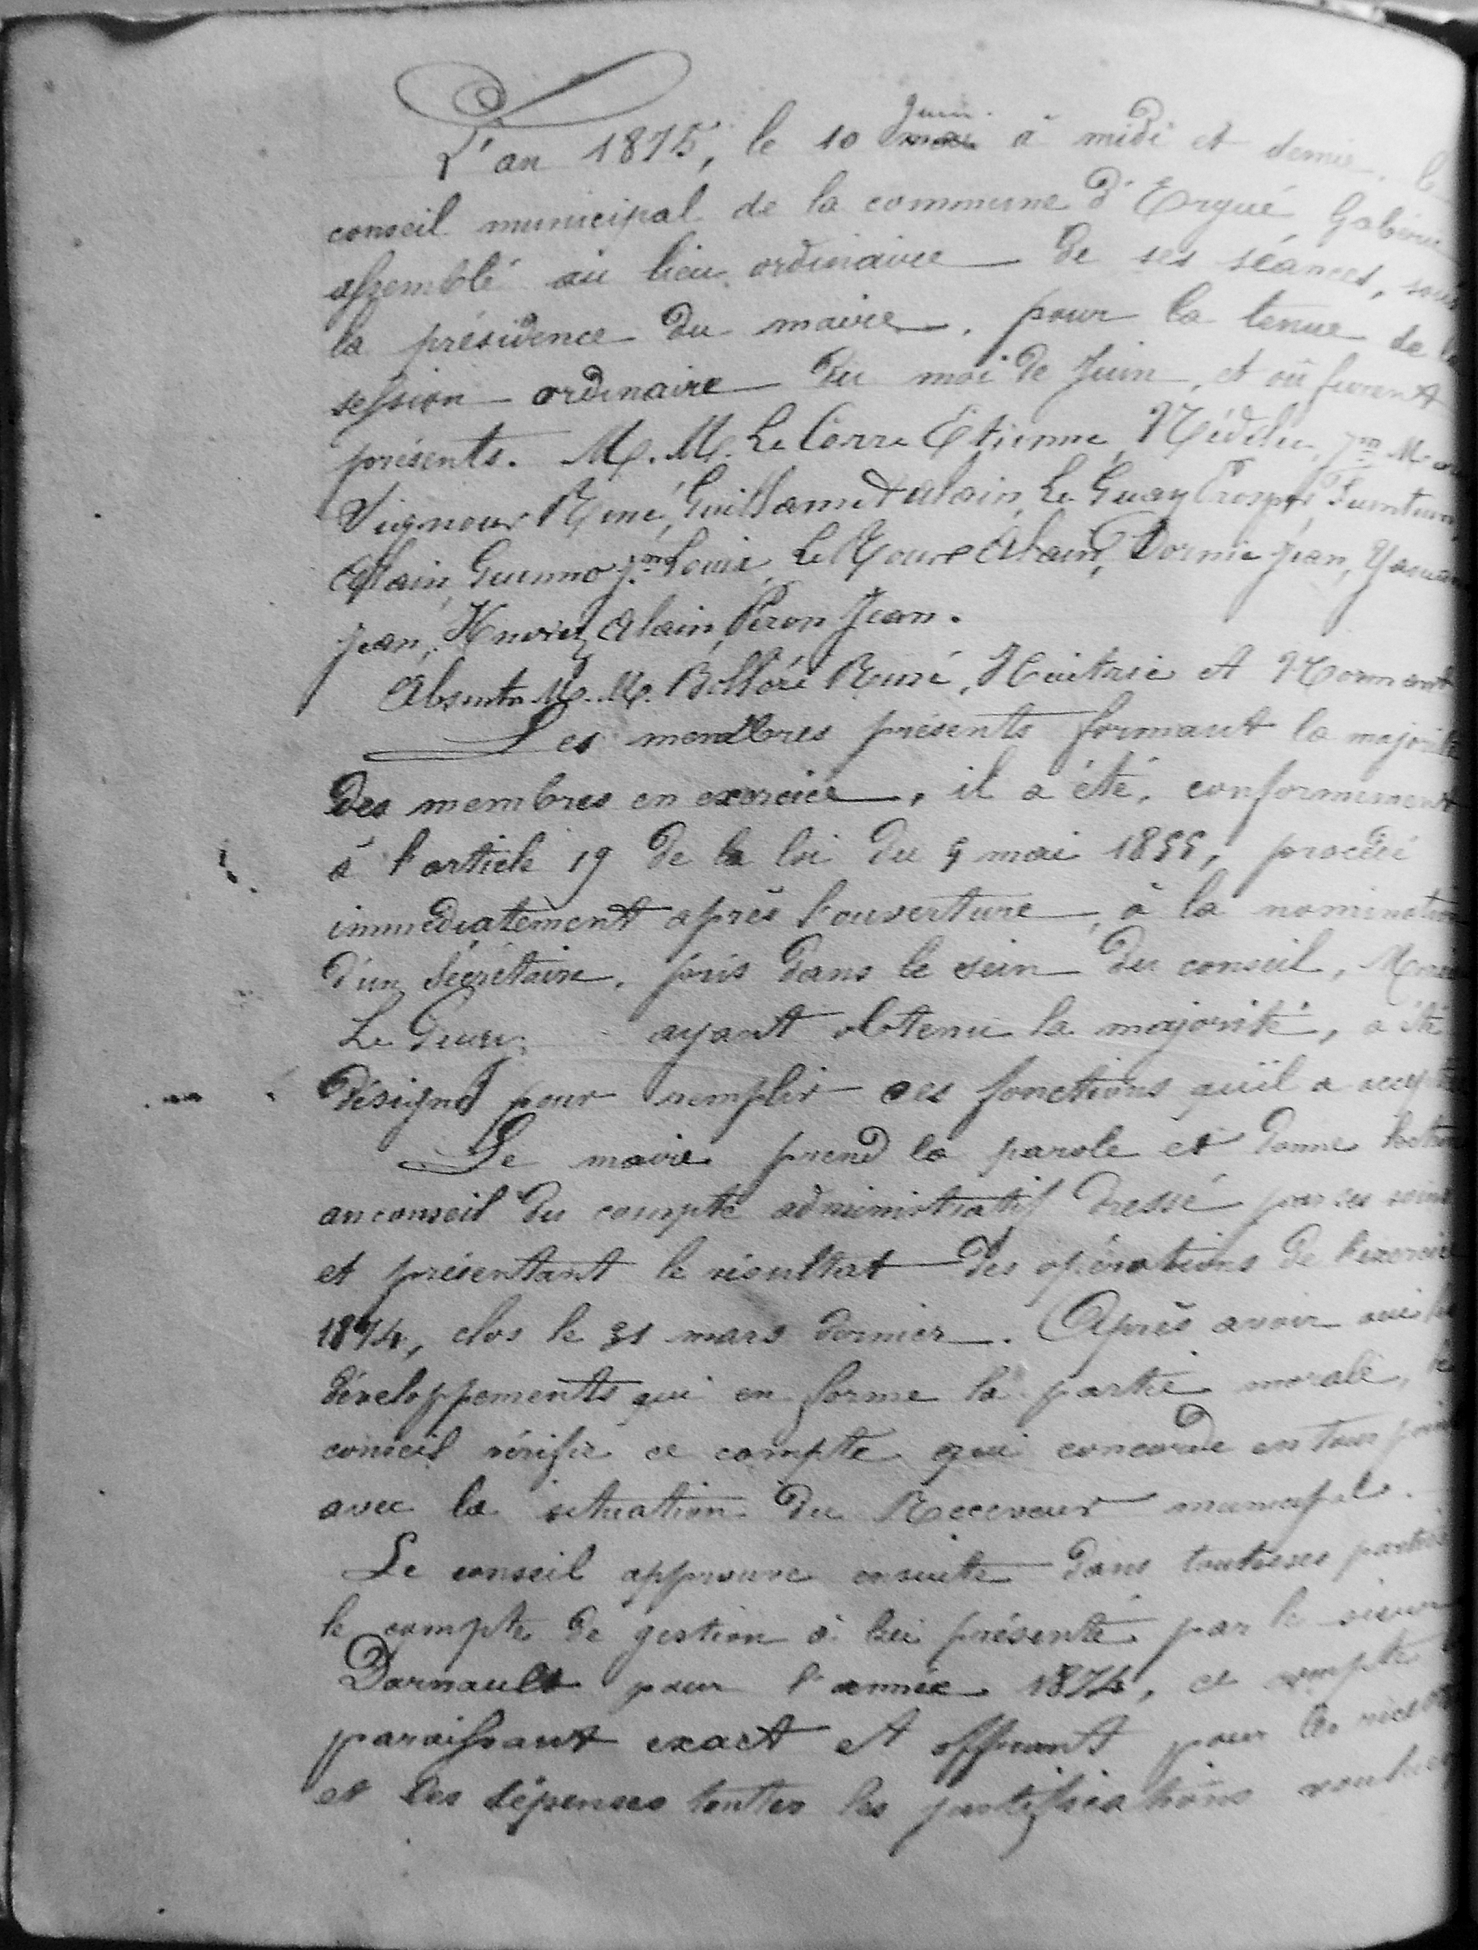 L'an 1875, le 10 mai Juin à midi et demie, le
conseil municipal de la commune d'Ergué Gabéric
assemblé au lieu ordinaire de ses séances, sous
la présidence du maire, pour la tenue de la
session ordinaire du moi de Juin, et où furent
présents. M. M. Le Corre Etienne, Nédélec, Jn M
Signour René, Guillamet Alain, Le Guay Prosper, Fuenteun
Alain, Guenno Jn Louis, Le Roux Alain, Dornic Jean,
Jean, Alain, Péron Jean.
Absents M. M. Bolloré René, et Normant
Les membres présents formant la majorité
des membres en exercice, il a été, conformement
à l'article 19 de la loi du 5 mai 1855, procédé
immédiatement après l'ouverture, à la nomination
d'un Secrétaire, pris dans le sein du conseil,
Le Guay ayant obtenu la majorité, a été
désigné pour remplir ces fonctions qu'il a accepté
Le maire prend la parole et donne lecture
au conseil du compte administratif dressé par ses soins
et présentant le résultat des opérations de l'exercice
1874, clos le 31 mars dernier. Après avoir oui les
développements qui en forme la partie morale, le
conseil vérifie ce compte qui concorde en tous points
avec la situation du Receveur municipal.
Le conseil approuve ensuite dans toutes ses parties
le compte de gestion à lui présenté par le sieur
Darnault pour l'année 1874, ce compte
paraissant exact et offrant pour les recettes
et les dépenses toutes les justifications voulues